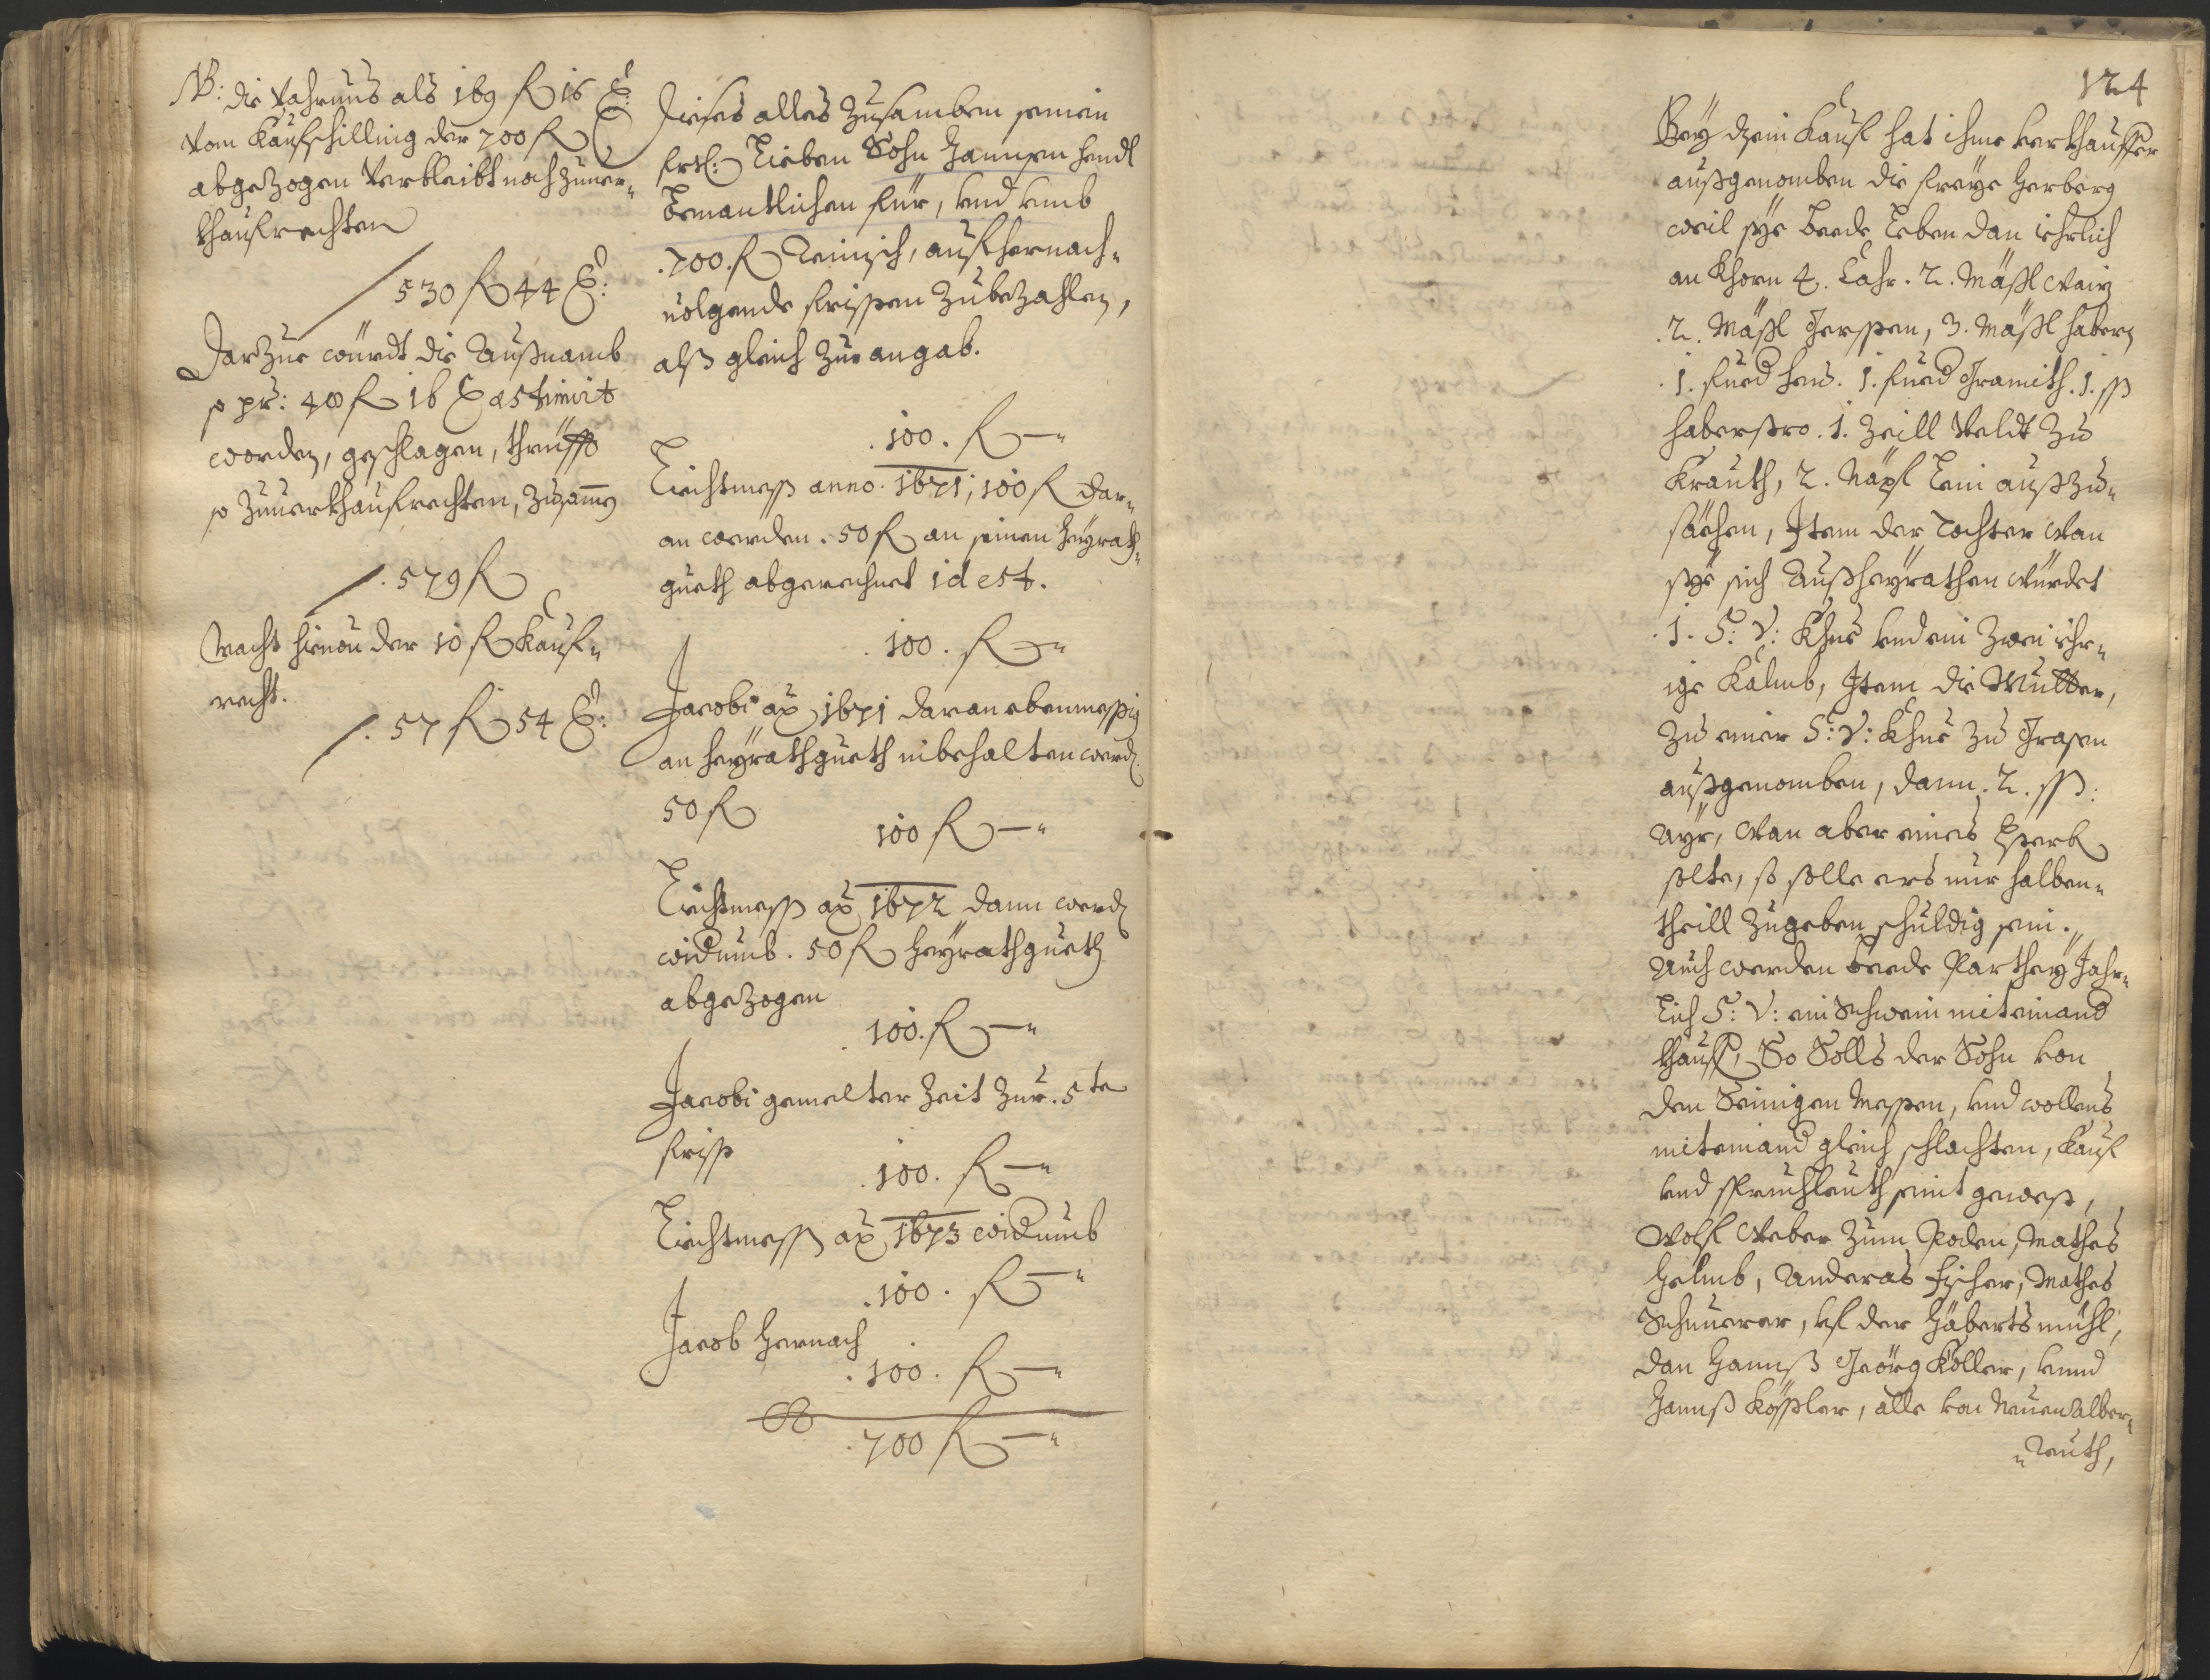 NB: die Vahrnus als 169 fl 16 x:
vom Kaufschilling der 700 fl
abgezogen verbleibt noch zuuer-
khaufrechten
530 fl 44 x:
Darzue würdt die Außnamb
so pr: 48 fl 16 x æstimirt
worden, geschlagen,
so zuuerkhaufrechten, zusamen
579 fl
Macht hieuon der 10 fl Kauf-
recht.
57 fl 54 x:
Dieses alles zusamben seinem
frtl: Lieben Sohn Hannsen
benantlichen für, vnd vmb
.700. fl Reinisch, auf hernach-
uolgende Fristen zubezahlen,
alß gleich zur angab.
.100. fl —
Liechtmeß anno 1671, 100 fl dar-
an werden . 50 fl an seinen heyrath-
gueth abgerechnet id est.
.100. fl —
Jacobi ao 1671 daran ebenmessig
an heyrathgueth inbehalten werd.
50 fl
100 fl —
Liechtmeß ao 1672 dann werd.
widumb . 50 fl heyrathgueth
abgezogen
100. fl —
Jacobi gemelter Zeit zur . 5te
Frist
.100. fl —
Liechtmeß ao 1673 widumb
.100. fl —
Jacob hernach
.100. fl —
.700 fl —
124
Bey disem Kauf hat ihme verkhauffer
außgenomben die freye Herberg
weil sye beede Leben dan iehrlich
an Khorn 4. Cahr. 2. Mäßl Waiz
.2. Mäßl Gersten, 3. Mäßl habern
.1. Fued heu. 1. Fued Gramith. 1. ß
haberstro. 1. Zeill Veldt zu
Krauth, 2. Napf Lein außzu-
säehen, Item der Tochter wan
sye sich Außheyrathen würdet
.1. S: V: Khue vnd ein zwei iehr-
ige Kalmb, Item die Mutter,
zu einer S: V: Khue zu Grasen
außgenomben, dann . 2. ß:
Ayr, wan aber eines
solte, so solle ers nur halben-
theill zugeben schuldig sein.
Auch werden beede Parthey Jahr-
lich S: V: ein Schwein miteinand
khauff, So Solls der Sohn von
den Seinigen Messen, vnd wollens
miteinand gleich schlachten, Kauf
vnd spruchleuth seint gewest,
Wolf Weber zum Poden, Mathes
Helmb, Anderas Fischer, Mathes
Scheuerer, vf der Häbertsmühl,
dan Hannß Georg Köller, vnnd
Hannß Kößler, alle von Neuenalber-
Reuth,